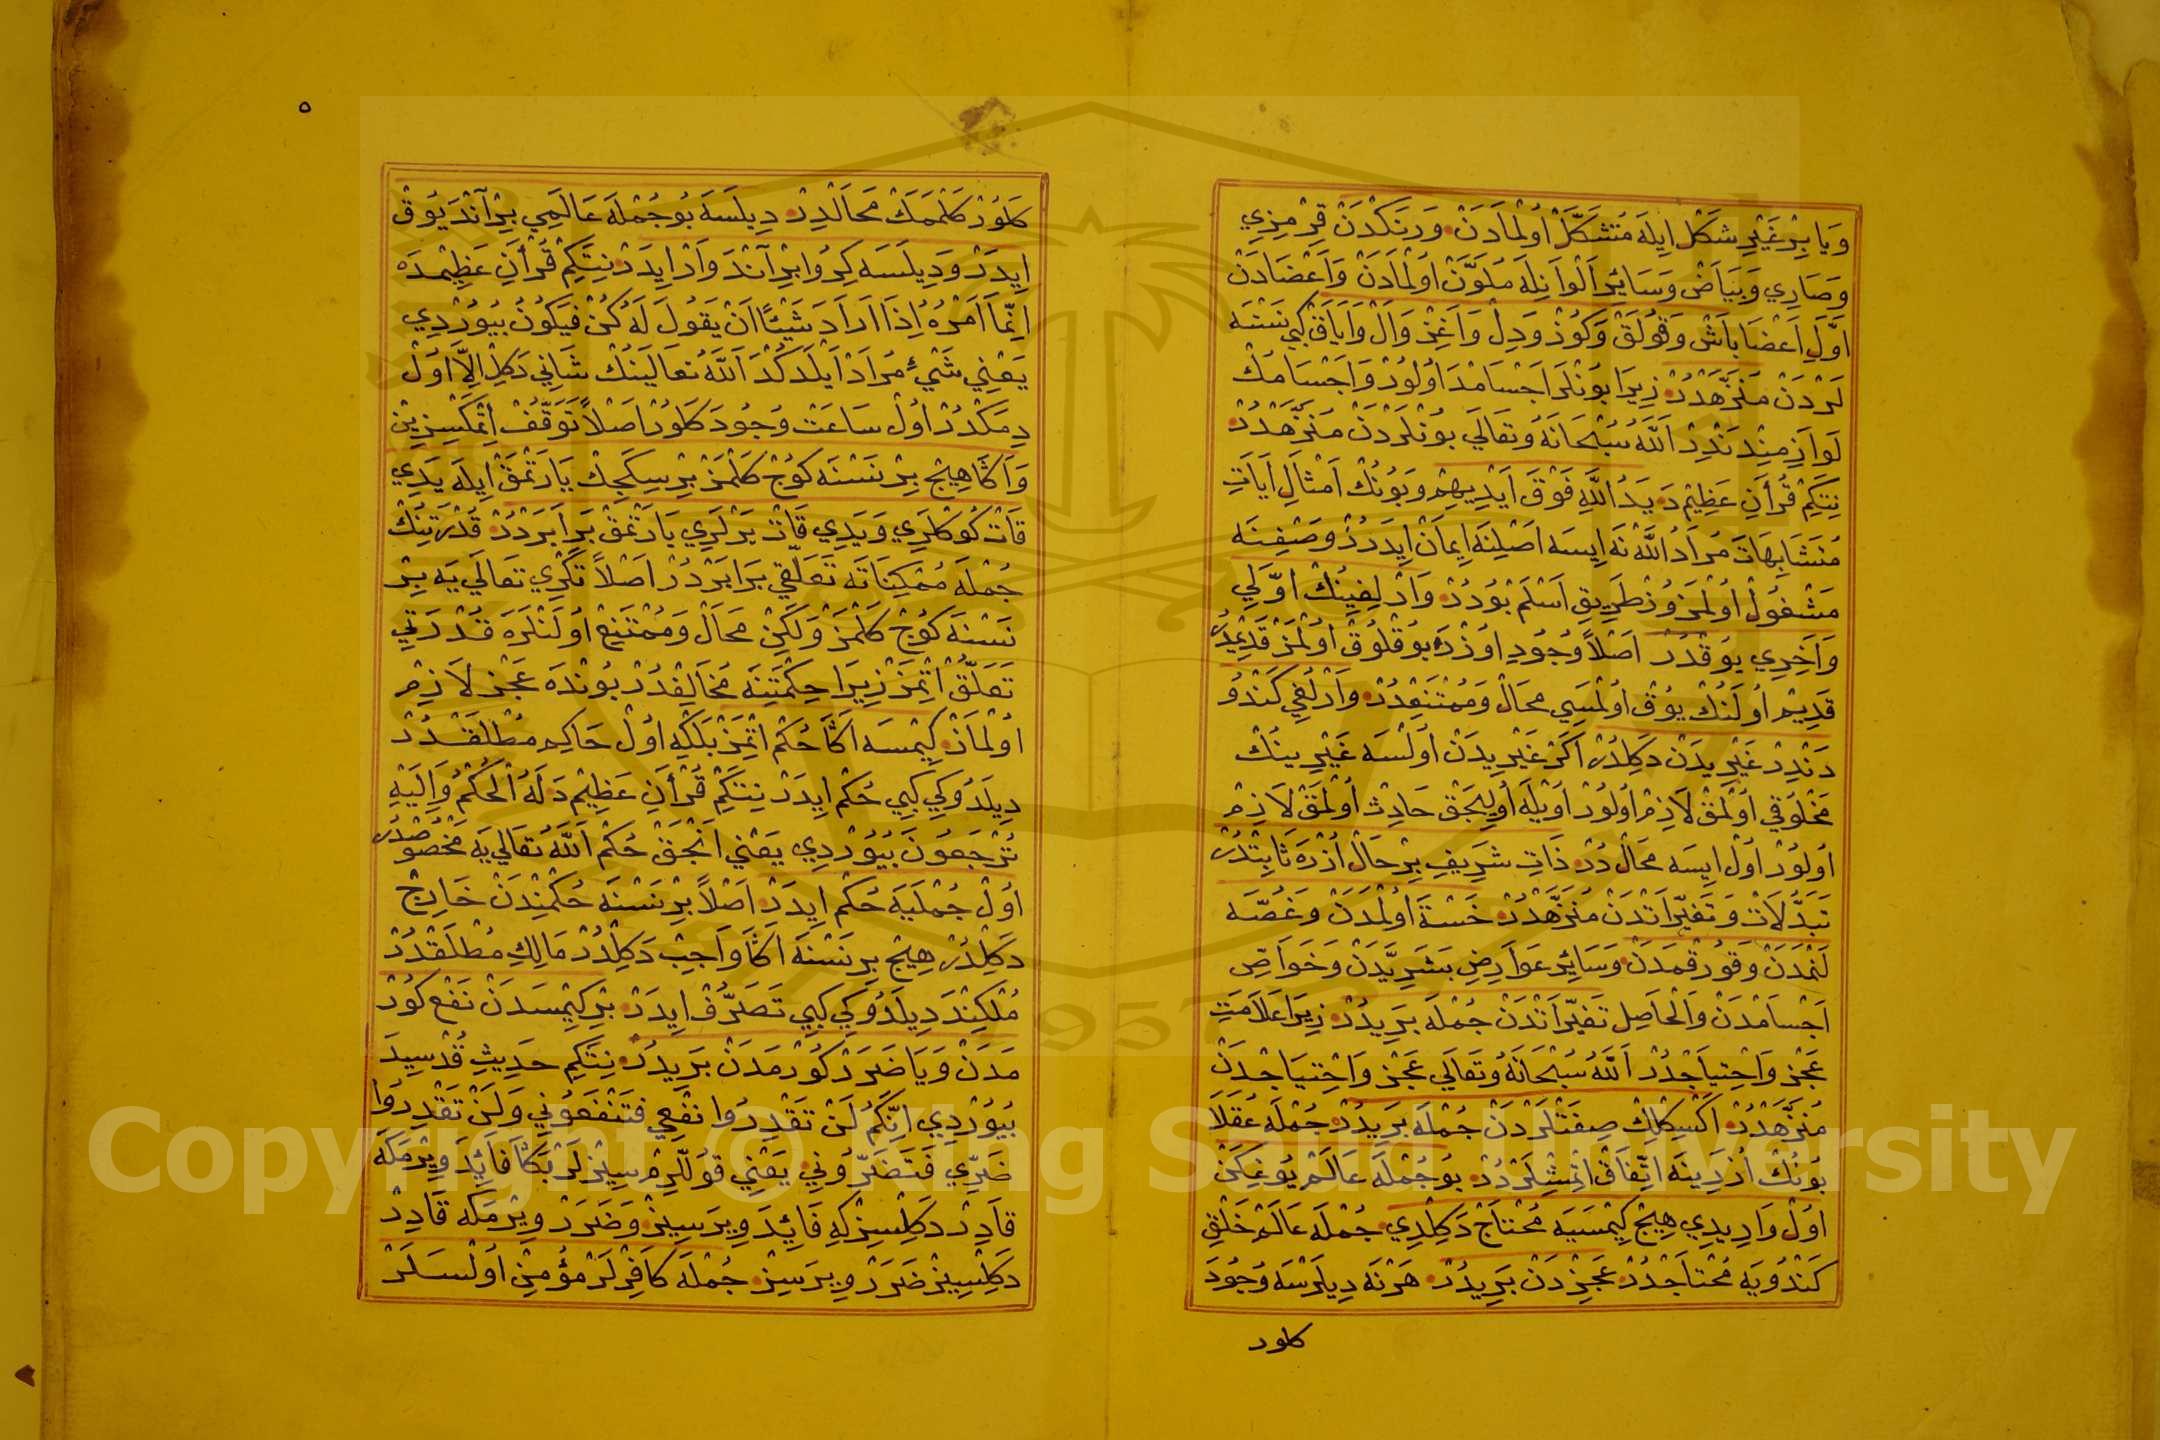 وَيَا بِرْ غَيْرِ شَكْل اِيلَه مُتَشَكَّلْ اُولْمَادَنْ وَرَنَكْدَنْ قِرْمِزِي
وَصَارِي وَبَيَاضْ وَسَائِرِ اَلْوَانِلَه مُلَوَّنْ اُولْمَادَنْ وَاَعْضَادَنْ
اَوَّلِ اَعْضَا بَاشْ وَقُولَقْ وَكُوزْ وَدِلْ وَاَغِزْ وَالْ وَاَيَاقْ كِبِي نَسْنَه
لَرْدَنْ مُنَزَّهْدُرْ زِيرَا بُونْلَر اَجْسَامْدَ اُولُورْ وَاَجْسَامُكْ
لَوَازِمِنْدَنْدِرْ اَللّٰهُ سُبْحَانَهُ وَتَعَالَي بُونْلَرْدَنْ مُنَزَّهْدُرْ
نِتَكِمْ قُرْأَنِ عَظِيمْدَ يَدُ اللّٰهِ فَوْقَ اَيْدِيهِمْ وَبُونُكْ اَمْثَالِ اَيَاتِ
مُتَشَابِهَاتَ مُرَادُ اللّٰهْ نَه اِيسَه اَصْلِنَه اِيمَانْ اِيدَرُزْ وَصْفِنَه
مَشْغُولْ اُولْمَزُوزْ طَرِيقِ اَسْلَمْ بُودُرْ وَارْلِغِينُكْ اَوَّلِي
وَاَخِرِي يُوقْدُرْ اَصْلاً وُجُودِ اُوزْرَه يُوقْلُوقْ اُولْمَزْ قَدِيمْدُرْ
قَدِيمْ اُولَنُكْ يُوقْ اُولْمَسِي مُحَالْ وَمُمْتَنِعْدُرْ وَارْلُغِي كَنْدُو
دَنْدِرْ غَيْرِيدَنْ دَكِلْدُرْ اَكَرْ غَيْرِيدَنْ اُولْسَه غَيْرِينُكْ
مَخْلُوقِي اُولْمَقْ لَازِمْ اُولُورْ اُويْلَه اُولِيجَقْ حَادِثْ اُولْمَقْ لَازِمْ
اُولُورْ اُولْ اِيسَه مُحَالْ دُرْ ذَاتِ شَرِيفِ بِرْ حَالْ اُزْرَه ثَابِتْدُرْ
تَبَدُّلَاتْ وَتَغَيُّرَاتْدَنْ مُنَزَّهْدُرْ خَسْتَه اُولْمَدَنْ وَغُصَّه
لَنْمَدَنْ وَقُورْقْمَدَنْ وَسَائِرِ عَوَارِضِ بَشَرِيَّدَنْ وَخَوَاصِّ
اَجْسَامْدَنْ وَالْحَاصِلِ تَغَيُّرَاتْدَنْ جُمْلَه بَرِيدُرْ زِيرَا عَلَامَتِ
عَجْز وَاحْتِيَاجْدُرْ اَللّٰهُ سُبْحَانَهُ وَتَعَالَي عَجْز وَاحْتِيَاجْدَنْ
مُنَزَّهْدُرْ اَكْسِكْلِكْ صِفَتْلَرْدَنْ جُمْلَه بَرِيدُرْ جُمْلَه عُقَلَا
بُونُكْ اُزْرِينَه اِتِّفَاقْ اِتْمِشْلَرْدُرْ بُو جُمْلَه عَالَمْ يُوغِكَنْ
اُولْ وَارِيدِي هِيچْ كِيمْسَيَه مُحْتَاجْ دَكِلْدِي جُمْلَه عَالَمْ خَلْقِ
كَنْدُويَه مُحْتَاجْدُرْ عَجِزْدَنْ بَرِيدُرْ هَرْ نَه دِيلَرْسَه وُجُودَ
كلور
٥
كَلُورْ كَلْمَمَكْ مُحَالْدِرْ دِيلَسَه بُو جُمْلَه عَالَمِي بِرْ آنْدَ يُوقْ
اِيدَرْ وَدِيلَسَه كِرُو بِرْ آنْدَ وَارْ اِيدَرْ نِتَكِمْ قُرْأَنِ عَظِيمْدَه
اِنَّمَا اَمْرُهُ اِذَا اَرَادَ شَيْئًا اَنْ يَقُولَ لَهُ كُنْ فَيَكُونُ بُيُورْدِي
يَعْنِي شَيْءِ مُرَادْ اَيْلَدُكْدَ اَللّٰهُ تَعَالَينُكْ شَانِي دَكِلْ اِلَّا اُولْ
دِمَكْدُرْ اُولْ سَاعَتْ وُجُودَ كَلُورْ اَصْلاً تَوَقُّفْ اِتْمَكْسِزِينْ
وَاَكَا هِيچْ بِرْ نَسْنَه كُوجْ كَلْمَزْ بِرْ سِكَجِكْ يَارَتْمَقْ اِيلَه يَدِي
قَاتْ كُوكْلَرِي وَيَدِي قَاتْ يَرْلَرِي يَارَتْمَقْ بَرَابَرْدُرْ قُدْرَتِنُكْ
جُمْلَه مُمْكِنَاتَه تَعَلُّقِي بَرَابَرْدُرْ اَصْلاً تَكْرِي تَعَالَي يَه بِرْ
نَسْنَه كُوجْ كَلْمَزْ وَلَكِنْ مُحَالْ وَمُمْتَنِعْ اُولَنْلَرَه قُدْرَتِي
تَعَلُّقْ اِتْمَزْ زِيرَا حِكْمَتِنَه مُخَالِفْدُرْ بُونْدَه عَجْز لَازِمْ
اُولْمَازْ كِيمْسَه اَكَا حُكْمْ اِتْمَزْ بَلْكِه اُولْ حَاكِمِ مُطْلَقْدُرْ
دِيلَدُوكِي كِبِي حُكْمْ اِيدَرْ نِتَكِمْ قُرْأَنِ عَظِيمْدَ لَهُ الْحُكْمُ وَاِلَيْهِ
تُرْجَعُونَ بُيُورْدِي يَعْنِي اَنْجَقْ حُكْمْ اَللّٰهُ تَعَالَي يَه مَخْصُوصْدُرْ
اُولْ جُمْلَيَه حُكْمْ اِيدَرْ اَصْلاً بِرْ نَسْنَه حُكْمِنْدَنْ خَارِجْ
دَكِلْدُرْ هِيچْ بِرْ نَسْنَه اَكَا وَاجِبْ دَكِلْدُرْ مَالِكِ مُطْلَقْدُرْ
مُلْكِنْدَ دِيلَدُوكِي كِبِي تَصَرُّفْ اِيدَرْ بِرْ كِيمْسَدَنْ نَفْع كُورْ
مَدَنْ وَيَا ضَرَرْ كُورْمَدَنْ بَرِيدُرْ نِتَكِمْ حَدِيثِ قُدْسِيدَ
بُيُورْدِي اِنَّكُمْ لَنْ تَقْدِرُوا نَفْعِي فَتَنْفَعُونِي وَلَنْ تَقْدِرُوا
ضَرِّي فَتَضَرُّونِي يَعْنِي قُولْلَرِمْ سِيزْلَرْ بَكَا فَائِدَ وِيرْمَكَه
قَادِرْ دَكِلْسِزْ كِه فَائِدَ وِيرَسِيزْ وَضَرَرْ وِيرْمَكَه قَادِرْ
دَكِلْسِيزْ ضَرَرْ وِيرَسِزْ جُمْلَه كَافِرْلَرْ مُؤْمِنْ اُولْسَلَرْ
Copyright © King Saud University
1957